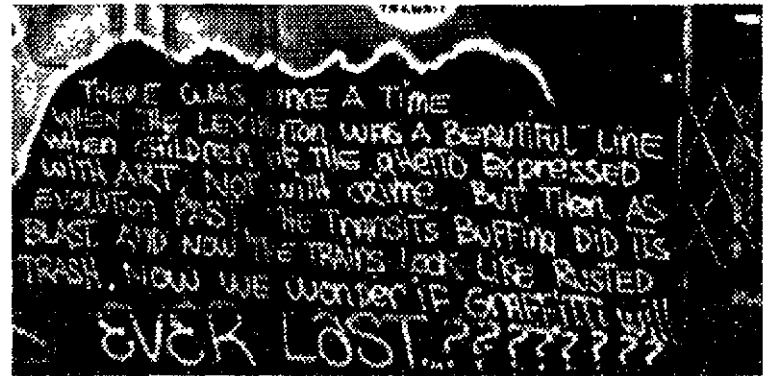 THERE WAS ONCE A TIME
WHEN THE LEXINGTON WAS A BEAUTIFUL LINE
WHEN CHILDREN OF THE GHETTO EXPRESSED
WITH ART, NOT WITH CRIME. BUT THEN AS
EVOLUTION PAST, THE TRANSITS BUFFING DID ITS
BLAST. AND NOW THE TRAINS LOOK LIKE RUSTED
TRASH. NOW WE WONDER IF GRAFFITI WILL
EVER LAST....????????